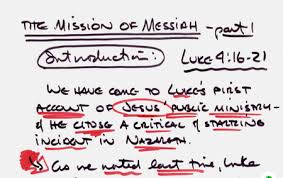 THE MISSION OF MESSIAH - part 1
Introduction: LUKE 4:16-21
WE HAVE COME TO LUKE'S FIRST
ACCOUNT OF JESUS' PUBLIC MINISTRY -
& HE CHOSE A CRITICAL & STARTLING
INCIDENT IN NAZARETH.
As we noted last time, Luke